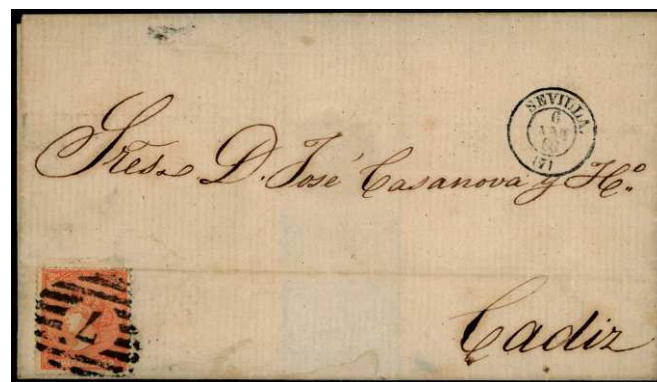 SEVILLA
6
66
(7)
Sres. D. José Casanova y Hº.
Cadiz
7